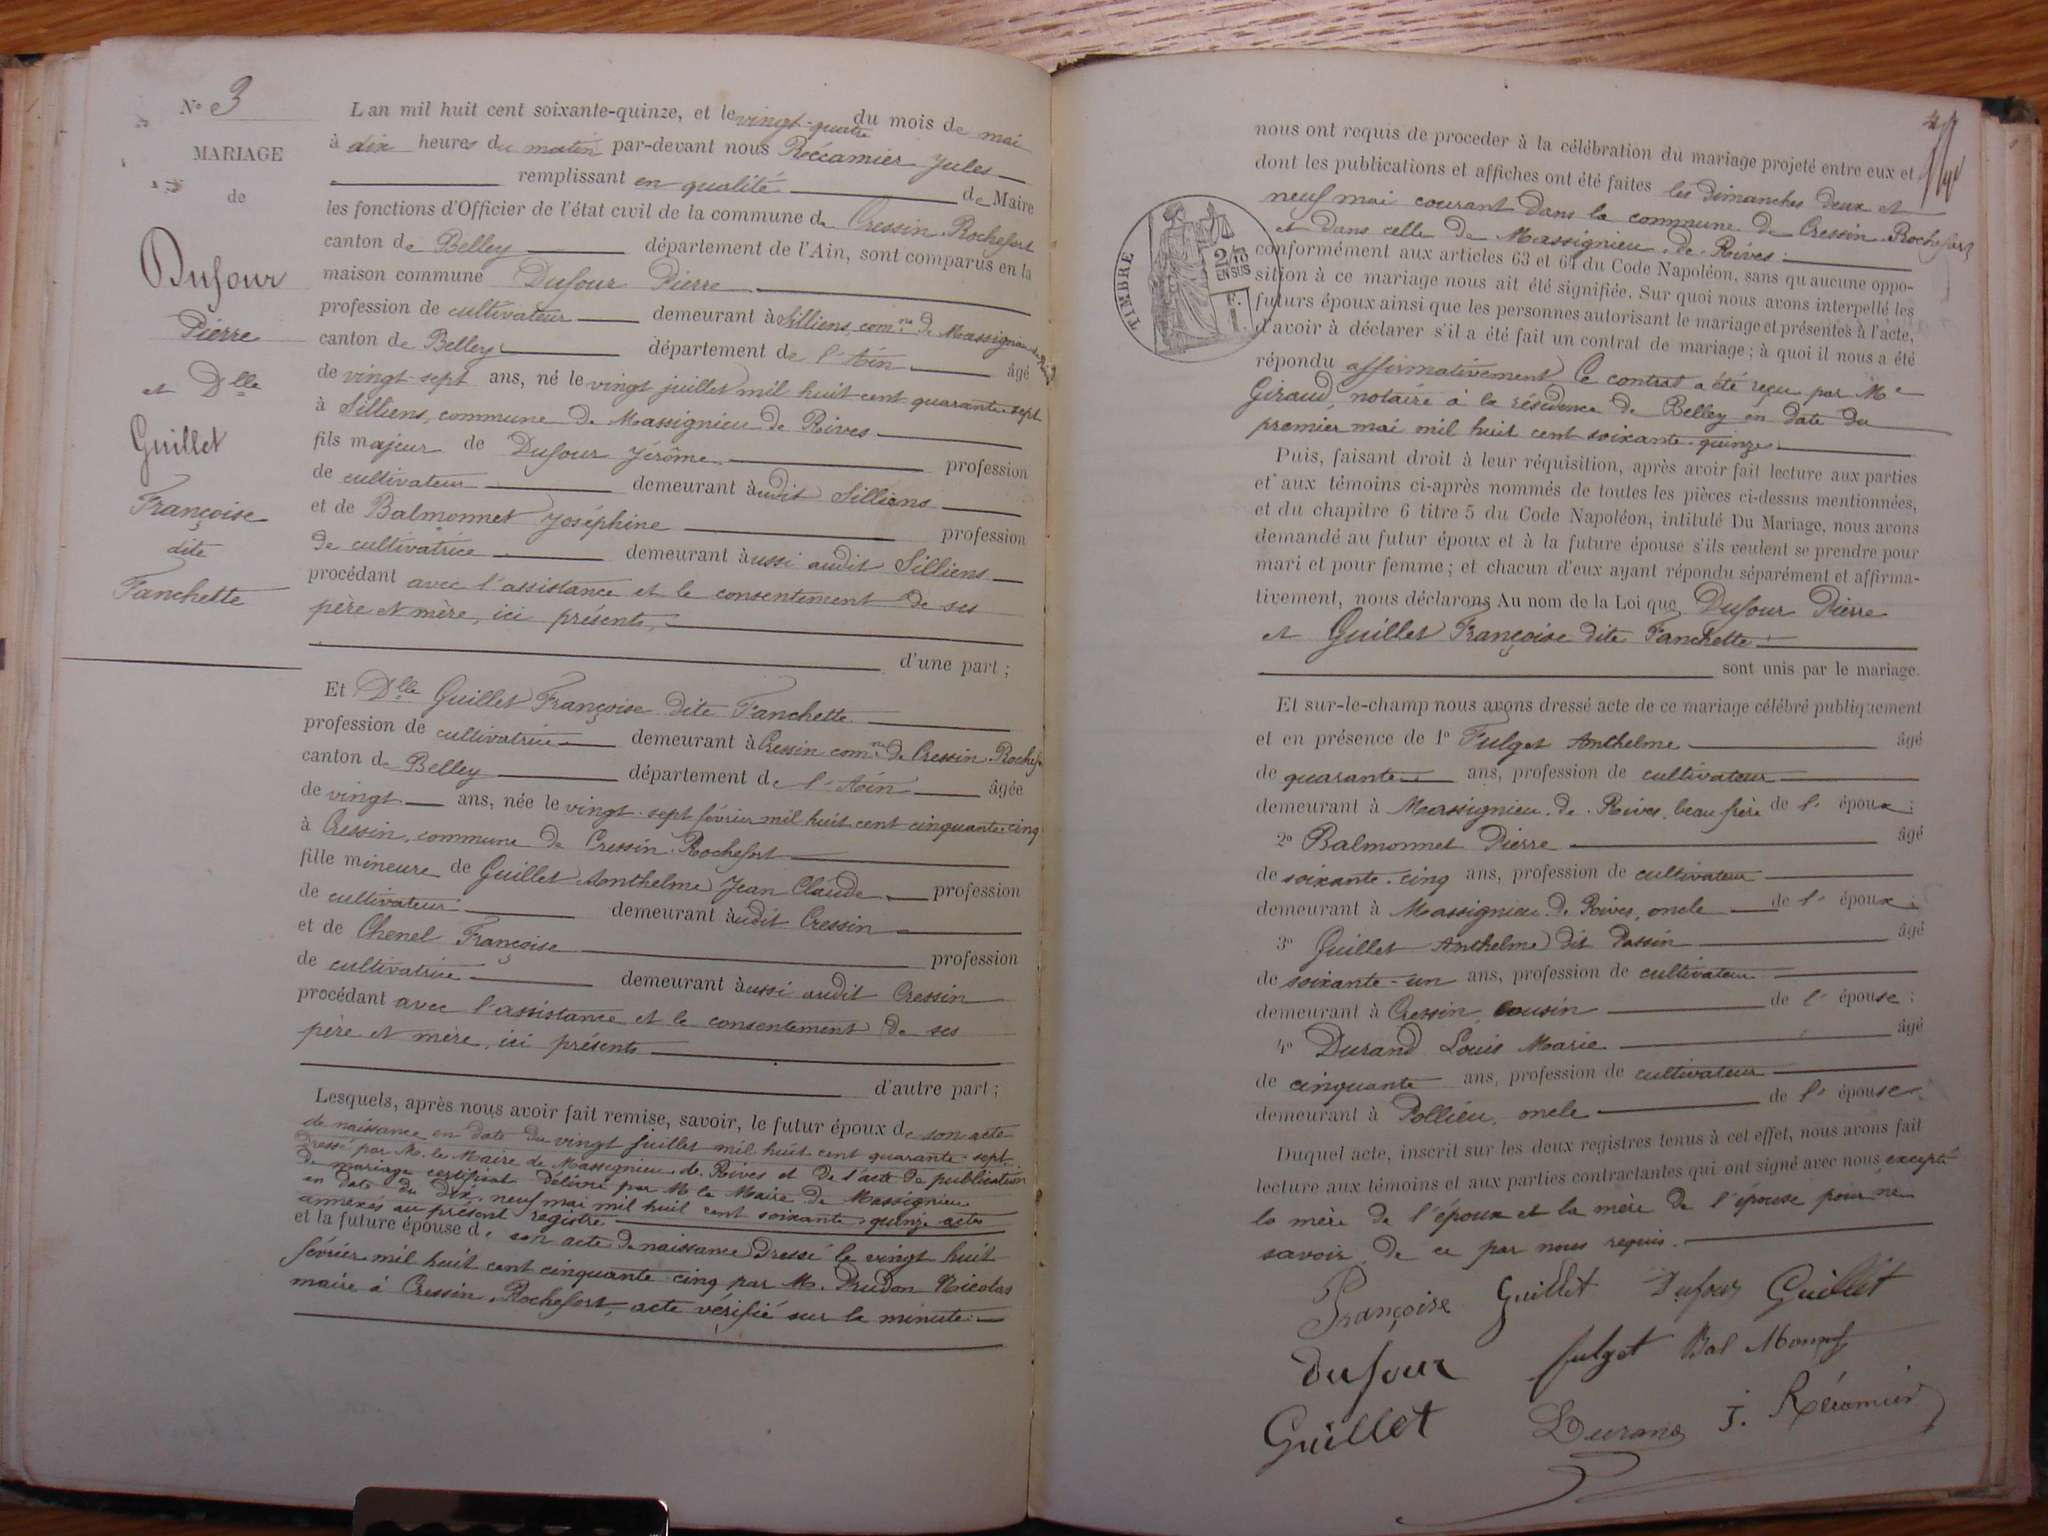 N° 3
MARIAGE
de
Dufour
Pierre
et Dlle
Guillet
Françoise
dite
Fanchette
L'an mil huit cent soixante-quinze, et le vingt-quatre du mois de mai
à dix heures du matin par-devant nous Réccamier Jules
remplissant en qualité de Maire
les fonctions d'Officier de l'état civil de la commune de Cressin-Rochefort
canton de Belley département de l'Ain, sont comparus en la
maison commune Dufour Pierre
profession de cultivateur demeurant à Silliens, comne de Massignieu de Rives
canton de Belley département de l'Ain âgé
de vingt-sept ans, né le vingt juillet mil huit cent quarante-sept
à Silliens, commune de Massignieu de Rives
fils majeur de Dufour Jérôme profession
de cultivateur demeurant audit Silliens
et de Balmonnet Joséphine profession
de cultivatrice demeurant aussi audit Silliens
procédant avec l'assistance et le consentement de ses
père et mère, ici présents,
d'une part ;
Et Dlle Guillet Françoise dite Fanchette
profession de cultivatrice demeurant à Cressin comne de Cressin-Rochef.
canton de Belley département de l'Ain âgée
de vingt ans, née le vingt-sept février mil huit cent cinquante-cinq
à Cressin, commune de Cressin-Rochefort
fille mineure de Guillet Anthelme Jean Claude profession
de cultivateur demeurant audit Cressin
et de Chenel Françoise profession
de cultivatrice demeurant aussi audit Cressin
procédant avec l'assistance et le consentement de ses
père et mère, ici présents
d'autre part ;
Lesquels, après nous avoir fait remise, savoir, le futur époux de son acte
de naissance en date du vingt juillet mil huit cent quarante-sept
dressé par M. le Maire de Massignieu de Rives et de l'acte de publication
de mariage certificat délivré par M. le Maire de Massignieu
en date du dix-neuf mai mil huit cent soixante-quinze actes
annexés au présent registre
et la future épouse d, son acte de naissance dressé le vingt huit
février mil huit cent cinquante-cinq par M. Prudon Nicolas
maire à Cressin-Rochefort, acte vérifié sur la minute.
nous ont requis de proceder à la célébration du mariage projeté entre eux et
dont les publications et affiches ont été faites les dimanches deux et
neuf mai courant dans la commune de Cressin-Rochefort
et dans celle de Massignieu de Rives
conformément aux articles 63 et 64 du Code Napoléon, sans qu'aucune oppo-
sition à ce mariage nous ait été signifiée. Sur quoi nous avons interpellé les
futurs époux ainsi que les personnes autorisant le mariage et présentes à l'acte,
d'avoir à déclarer s'il a été fait un contrat de mariage ; à quoi il nous a été
répondu affirmativement Ce contrat a été reçu par Me
Giraud, notaire à la résidence de Belley en date du
premier mai mil huit cent soixante-quinze.
TIMBRE
2/10
EN SUS
F.
1
Puis, faisant droit à leur réquisition, après avoir fait lecture aux parties
et aux témoins ci-après nommés de toutes les pièces ci-dessus mentionnées,
et du chapitre 6 titre 5 du Code Napoléon, intitulé Du Mariage, nous avons
demandé au futur époux et à la future épouse s'ils veulent se prendre pour
mari et pour femme ; et chacun d'eux ayant répondu séparément et affirma-
tivement, nous déclarons Au nom de la Loi que Dufour Pierre
et Guillet Françoise dite Fanchette
sont unis par le mariage.
Et sur-le-champ nous avons dressé acte de ce mariage célébré publiquement
et en présence de 1° Fulget Anthelme âgé
de quarante ans, profession de cultivateur
demeurant à Massignieu de Rives, beau frère de l'époux ;
2° Balmonnet Pierre âgé
de soixante-cinq ans, profession de cultivateur
demeurant à Massignieu de Rives, oncle de l'époux ;
3° Guillet Anthelme dit Passin âgé
de soixante-un ans, profession de cultivateur
demeurant à Cressin, cousin de l'épouse ;
4° Durand Louis Marie âgé
de cinquante ans, profession de cultivateur
demeurant à Pollieu, oncle de l'épouse.
Duquel acte, inscrit sur les deux registres tenus à cet effet, nous avons fait
lecture aux témoins et aux parties contractantes qui ont signé avec nous excepté
la mère de l'époux et la mère de l'épouse pour ne
savoir de ce par nous requis.
Françoise Guillet Dufour Guillet
Dufour fulget Bal Monnet
Guillet Durand J. Récamier